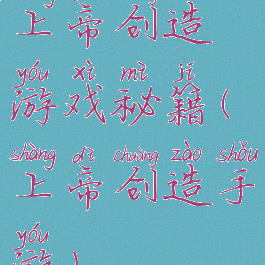 上帝创造
yóu xì mì jí
游戏秘籍(
shàng dì chuàng zào shǒu
上帝创造手
yóu
游)